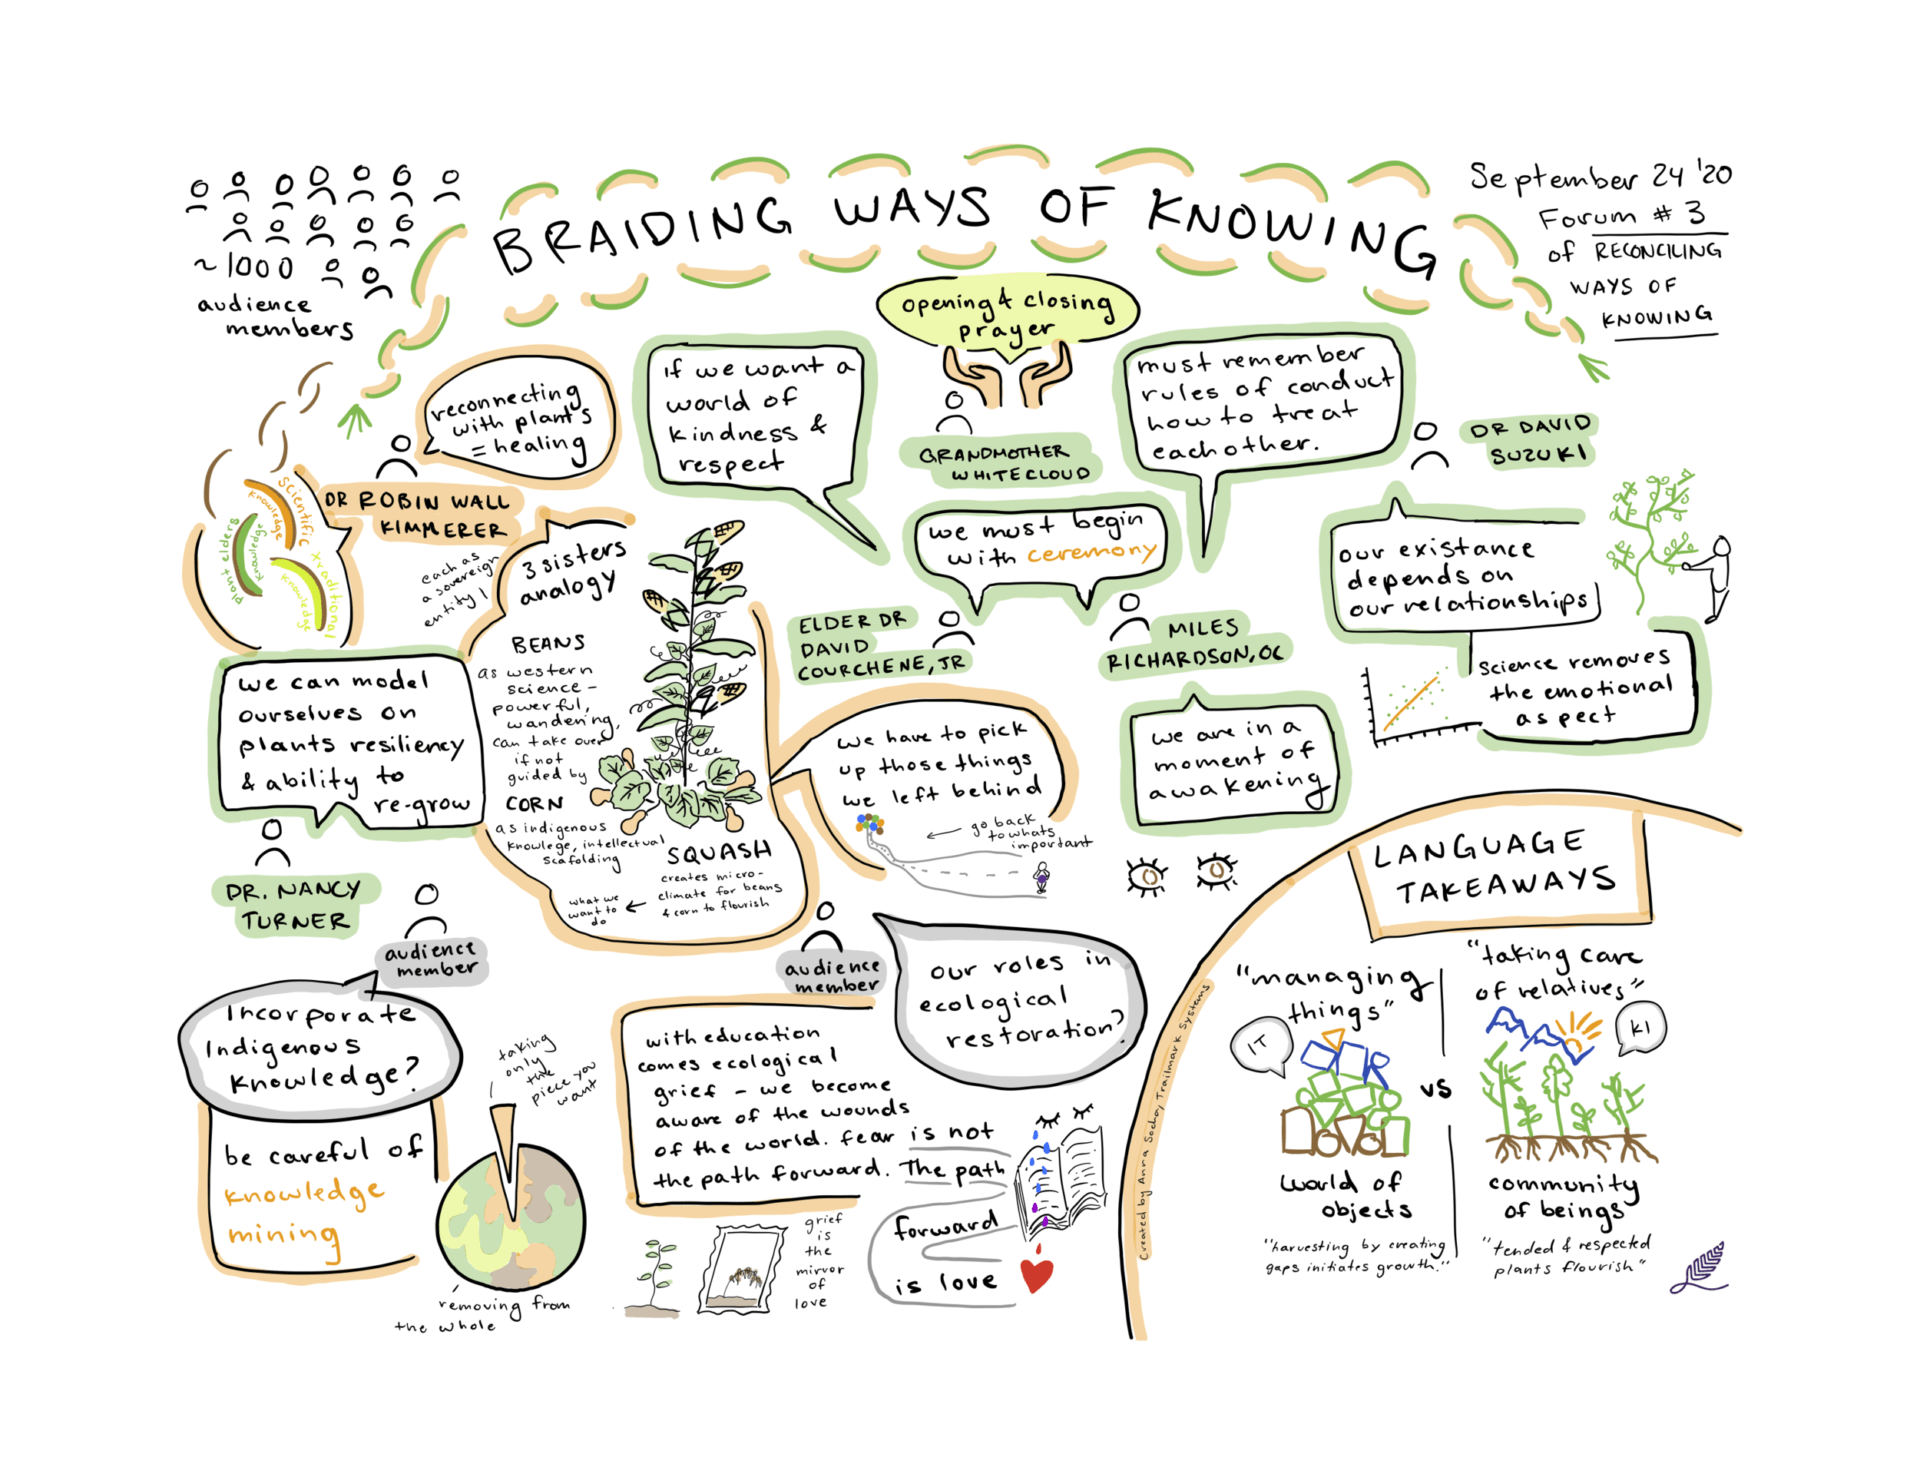 BRAIDING WAYS OF KNOWING
~1000
audience
members
September 24 '20
Forum # 3
of RECONCILING
WAYS OF
KNOWING
opening & closing
prayer
GRANDMOTHER
WHITECLOUD
reconnecting
with plants
= healing
DR ROBIN WALL
KIMMERER
scientific
knowledge
plant elders
knowledge
traditional
knowledge
each as
a sovereign
entity!
if we want a
world of
kindness &
respect
we must begin
with ceremony
must remember
rules of conduct
how to treat
eachother.
ELDER DR
DAVID
COURCHENE, JR
MILES
RICHARDSON, OC
DR DAVID
SUZUKI
our existance
depends on
our relationships
science removes
the emotional
aspect
we are in a
moment of
awakening
3 sisters
analogy
BEANS
as western
science –
powerful,
wandering,
can take over
if not
guided by
CORN
as indigenous
knowlege, intellectual
scafolding
SQUASH
creates micro-
climate for beans
& corn to flourish
what we
want to
do
we have to pick
up those things
we left behind
go back
to whats
important
we can model
ourselves on
plants resiliency
& ability to
re-grow
DR. NANCY
TURNER
audience
member
Incorporate
Indigenous
Knowledge?
be careful of
knowledge
mining
taking
only
the
piece you
want
removing from
the whole
audience
member
our roles in
ecological
restoration?
with education
comes ecological
grief – we become
aware of the wounds
of the world. fear is not
the path forward. The path
forward
is love
grief
is
the
mirror
of
love
Created by Anna Socha, Trailmark Systems
LANGUAGE
TAKEAWAYS
"managing
things"
IT
world of
objects
"harvesting by creating
gaps initiates growth."
vs
"taking care
of relatives"
KI
community
of beings
"tended & respected
plants flourish"